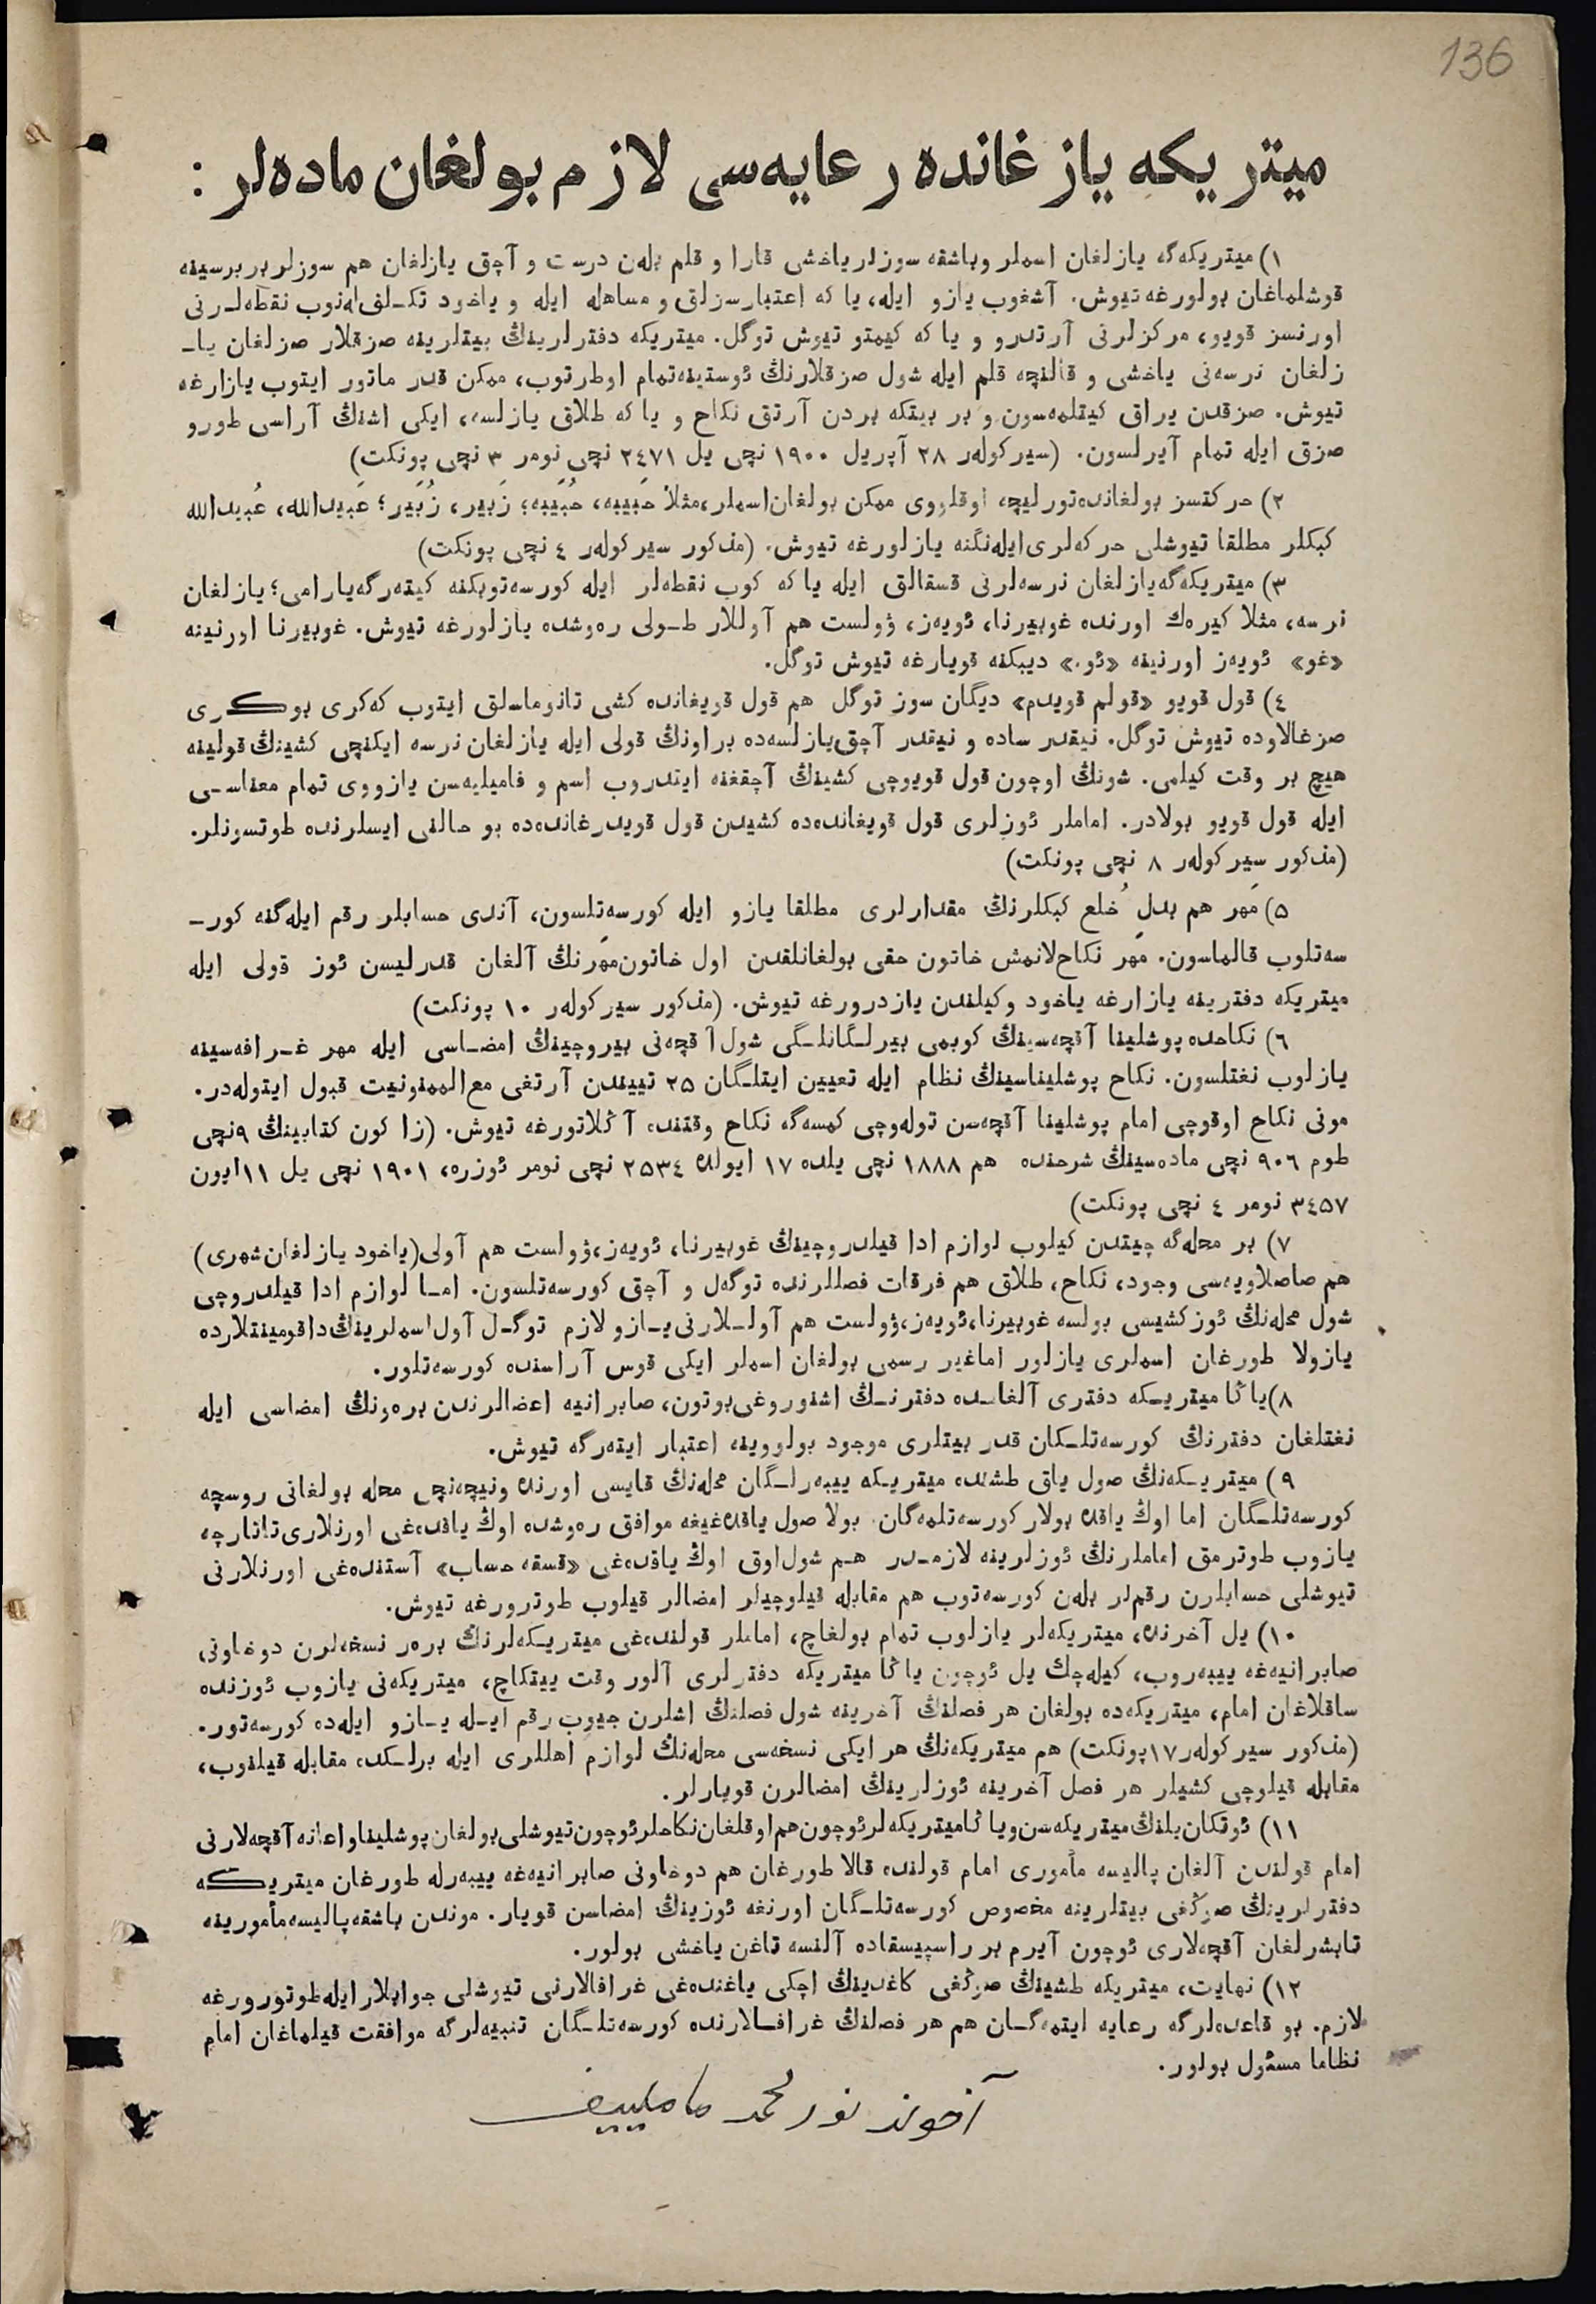 136
ميتريكه يازغانده رعايه‌سى لازم بولغان ماده‌لر :
١) ميتريكه‌گه يازلغان اسملر وباشقه سوزلر ياخشى قارا و قلم بله‌ن درست و آچق يازلغان هم سوزلر بر برسينه
قوشلماغان بولورغه تيوش. آشغوب يازو ايله، يا كه اعتبارسزلق و مساهله ايله و ياخود تكـلف‌له‌نوب نقطه‌لـرنى
اورنسز قويو، مركزلرنى آرتدرو و يا كه كيمتو تيوش توگل. ميتريكه دفترلرينڭ بيتلرينه صزقلار صزلغان يا-
زلغان نرسه‌نى ياخشى و قالنچه قلم ايله شول صزقلارنڭ ئوستينه تمام اوطرتوب، ممكن قدر ماتور ايتوب يازارغه
تيوش. صزقدن يراق كيتلمه‌سون و بر بيتكه بردن آرتق نكاح و يا كه طلاق يازلسه، ايكى اشنڭ آراسى طورو
صزق ايله تمام آيرلسون. (سيركوله‌ر ٢٨ آپريل ١٩٠٠ نچى يل ٢٤٧١ نچى نومر ٣ نچى پونكت)
٢) حركتسز بولغانده تورليچه اوقلووى ممكن بولغان اسملر، مثلا حَبيبه، حُبَيبه؛ زَبير، زُبَير؛ عَبيدالله، عُبيدالله
كبكلر مطلقا تيوشلى حركه‌لرى ايله‌نگنه يازلورغه تيوش. (مذكور سيركوله‌ر ٤ نچى پونكت)
٣) ميتريكه‌گه يازلغان نرسه‌لرنى قسقالق ايله يا كه كوب نقطه‌لر ايله كورسه‌توبكنه كيته‌رگه يارامى؛ يازلغان
نرسه، مثلا كيره‌ك اورنده غوبيرنا، ئويه‌ز، ۋولست هم آوللار طـولى ره‌وشده يازلورغه تيوش. غوبيرنا اورنينه
«غو» ئويه‌ز اورنينه «ئو.» ديبكنه قويارغه تيوش توگل.
٤) قول قويو «قولم قويدم» ديگان سوز توگل هم قول قويغانده كشى تانوماسلق ايتوب كه‌كرى بوكـرى
صزغالاوده تيوش توگل. نيقدر ساده و نيقدر آچق يازلسه‌ده براونڭ قولى ايله يازلغان نرسه ايكنچى كشينڭ قولينه
هيچ بر وقت كيلمى. شونڭ اوچون قول قويوچى كشينڭ آچقغنه ايتدروب اسم و فاميليه‌سن يازووى تمام معناسـى
ايله قول قويو بولادر. اماملر ئوزلرى قول قويغانده‌ده كشيدن قول قويدرغانده‌ده بو حالنى ايسلرنده طوتسونلر.
(مذكور سيركوله‌ر ٨ نچى پونكت)
٥) مَهر هم بدلِ خُلع كبكلرنڭ مقدارلرى مطلقا يازو ايله كورسه‌تلسون، آندى حسابلر رقم ايله‌گنه كور-
سه‌تلوب قالماسون. مهر نكاح‌لانمش خاتون حقى بولغانلقدن اول خاتون مهرنڭ آلغان قدرليسن ئوز قولى ايله
ميتريكه دفترينه يازارغه ياخود وكيلندن يازدرورغه تيوش. (مذكور سيركوله‌ر ١٠ پونكت)
٦) نكاحده پوشلينا آقچه‌سينڭ كوبمى بيرلـگانلـگى شول آقچه‌نى بيروچينڭ امضـاسى ايله مهر غـرافه‌سينه
يازلوب نغتلسون. نكاح پوشليناسينڭ نظام ايله تعيين ايتلـگان ٢٥ تييندن آرتغى مع‌الممنونيت قبول ايتوله‌در.
مونى نكاح اوقوچى امام پوشلينا آقچه‌سن توله‌وچى كمسه‌گه نكاح وقتنده آڭلاتورغه تيوش. (زاكون كتابينڭ ٩نچى
طوم ٩٠٦ نچى ماده‌سينڭ شرحنده هم ١٨٨٨ نچى يلده ١٧ ايولده ٢٥٣٤ نچى نومر ئوزره، ١٩٠١ نچى يل ١١ ايون
٣٤٥٧ نومر ٤ نچى پونكت)
٧) بر محله‌گه چيتدن كيلوب لوازم ادا قيلدروچينڭ غوبيرنا، ئويه‌ز، ۋولست هم آولى (ياخود يازلغان شهرى)
هم صاصلاويه‌سى وجود، نكاح، طلاق هم فرقات فصللرنده توگه‌ل و آچق كورسه‌تلسون. امـا لوازم ادا قيلدروچى
شول محله‌نڭ ئوز كشيسى بولسه غوبيرنا، ئويه‌ز، ۋولست هم آولـلارنى يـازو لازم توگـل آول اسملرينڭ داقومينتلارده
يازولا طورغان اسملرى يازلور اماغير رسمى بولغان اسملر ايكى قوس آراسنده كورسه‌تلور.
٨) ياڭا ميتريـكه دفترى آلغانـده دفترنـڭ اشنوروغى بوتون، صابرانيه اعضالرندن بره‌ونڭ امضاسى ايله
نغتلغان دفترنڭ كورسه‌تلـكان قدر بيتلرى موجود بولووينه اعتبار ايته‌رگه تيوش.
٩) ميتريـكه‌نڭ صول ياق طشنده ميتريـكه ييبه‌رلـگان محله‌نڭ قايسى اورنده ونيچه‌نچى محله بولغانى روسچه
كورسه‌تلـگان اما اوڭ ياقده بولار كورسه‌تلمه‌گان. بولا صول ياقده‌غيغه موافق ره‌وشده اوڭ ياقده‌غى اورنلارى تاتارچه
يازوب طوترمق اماملرنڭ ئوزلرينه لازمـدر هـم شول اوق اوڭ ياقده‌غى «قسقه حساب» آستنده‌غى اورنلارنى
تيوشلى حسابلرن رقملر بله‌ن كورسه‌توب هم مقابله قيلوچيلر امضالر قيلوب طوترورغه تيوش.
١٠) يل آخرنده، ميتريكه‌لر يازلوب تمام بولغاچ، اماملر قولنده‌غى ميتريـكه‌لرنڭ بره‌ر نسخه‌لرن دوخاونى
صابرانيه‌غه ييبه‌روب، كيله‌چك يل ئوچون ياڭا ميتريكه دفترلرى آلور وقت ييتكاچ، ميتريكه‌نى يازوب ئوزنده
ساقلاغان امام، ميتريكه‌ده بولغان هر فصلنڭ آخرينه شول فصلنڭ اشلرن جيوب رقم ايـله يـازو ايله‌ده كورسه‌تور.
(مذكور سيركوله‌ر ١٧ پونكت) هم ميتريكه‌نڭ هر ايكى نسخه‌سى محله‌نڭ لوازم اهللرى ايله برلـكده مقابله قيلنوب،
مقابله قيلوچى كشيلر هر فصل آخرينه ئوزلرينڭ امضالرن قويارلر.
١١) ئوتكان يلنڭ ميتريكه‌سن و ياڭا ميتريكه‌لر ئوچون هم اوقلغان نكاحلر ئوچون تيوشلى بولغان پوشلينا و اعانه آقچه‌لارنى
امام قولندن آلغان پاليسه مأمورى امام قولنده قالا طورغان هم دوخاونى صابرانيه‌غه ييبه‌رله طورغان ميتريـكه
دفترلرينڭ صوڭغى بيتلرينه مخصوص كورسه‌تلـگان اورنغه ئوزينڭ امضاسن قويار. موندن باشقه پاليسه مأمورينه
تابشرلغان آقچه‌لارى ئوچون آيرم بر راسپيسقاده آلنسه تاغن ياخشى بولور.
١٢) نهايت، ميتريكه طشينڭ صوڭغى كاغدينڭ اچكى ياغنده‌غى غرافالارنى تيوشلى جوابلار ايله طوتورورغه
لازم. بو قاعده‌لرگه رعايه ايتمه‌گـان هم هر فصلنڭ غرافـالارنده كورسه‌تلـگان تنبيه‌لرگه موافقت قيلماغان امام
نظاما مسئول بولور.
آخوند نورمحمد ماملييف